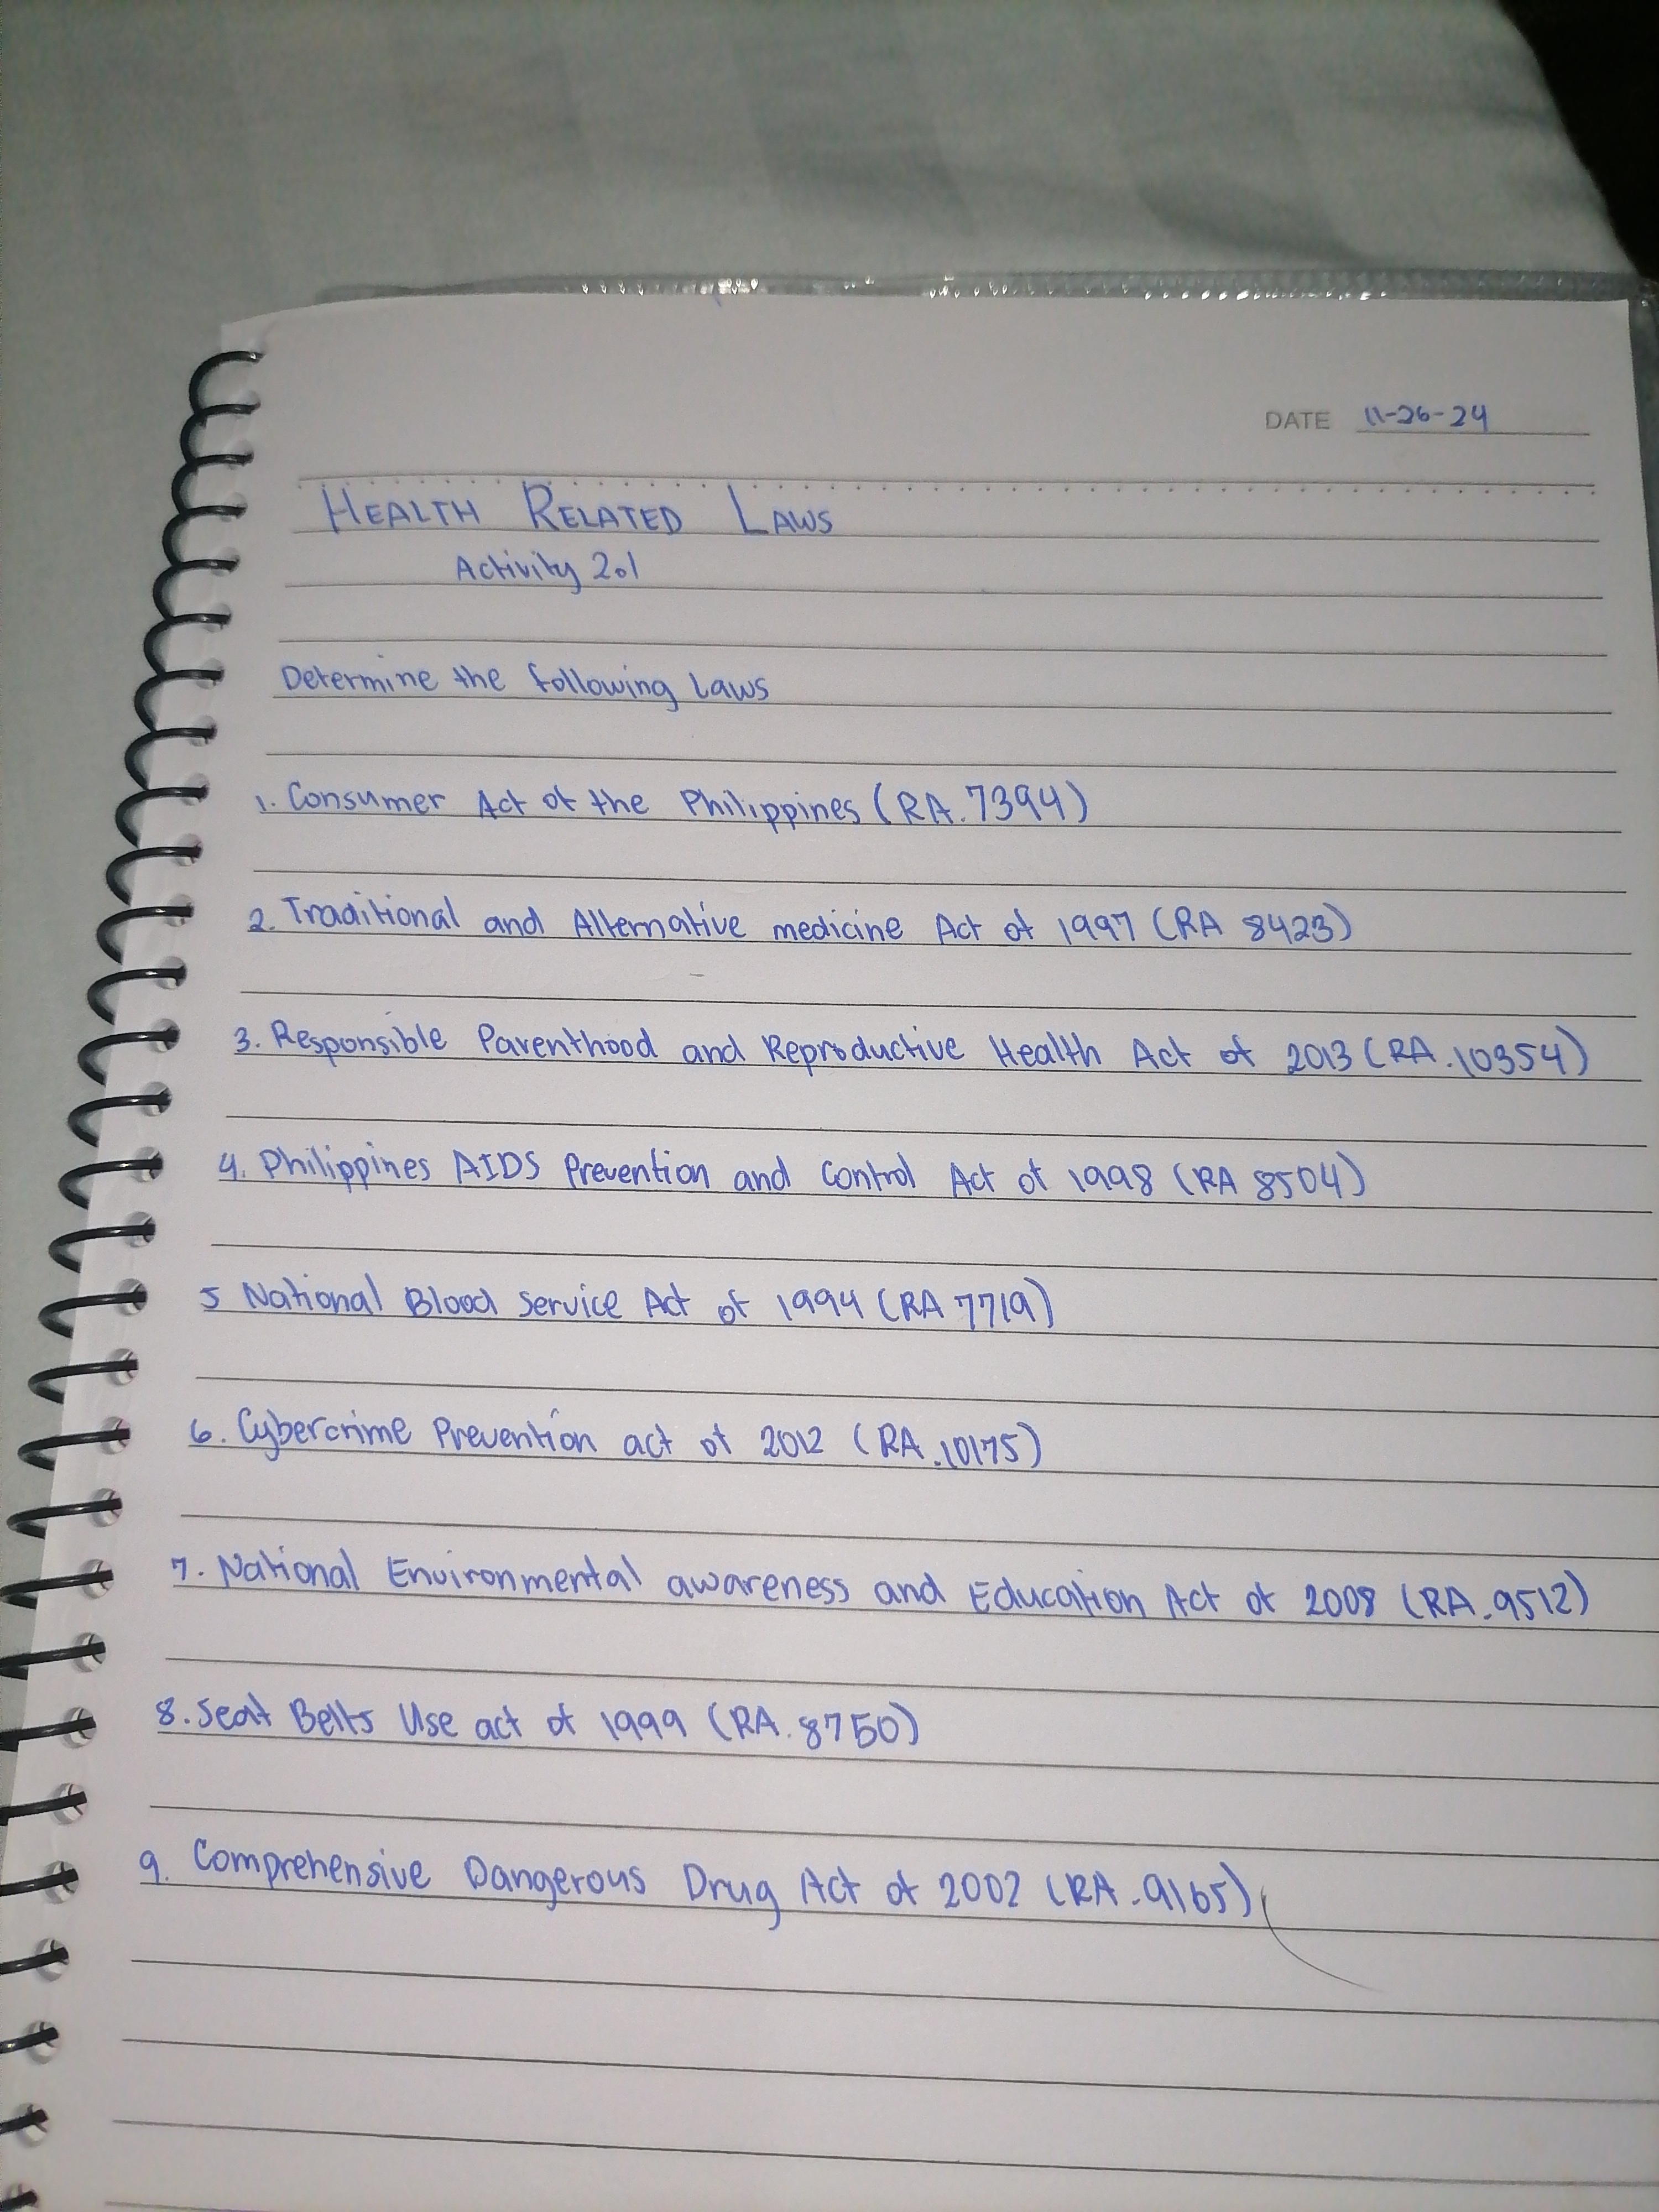 DATE 11-26-24
HEALTH RELATED LAWS
Activity 2.1
Determine the following Laws
1. Consumer Act of the Philippines (RA. 7394)
2. Traditional and Alternative medicine Act of 1997 (RA 8423)
3. Responsible Parenthood and Reproductive Health Act of 2013 (RA. 10354)
4. Philippines AIDS Prevention and Control Act of 1998 (RA 8504)
5 National Blood Service Act of 1994 (RA 7719)
6. Cybercrime Prevention act of 2012 (RA. 10175)
7. National Environmental awareness and Education Act of 2008 (RA. 9512)
8. Seat Belts Use act of 1999 (RA. 8750)
9. Comprehensive Dangerous Drug Act of 2002 (RA. 9165)